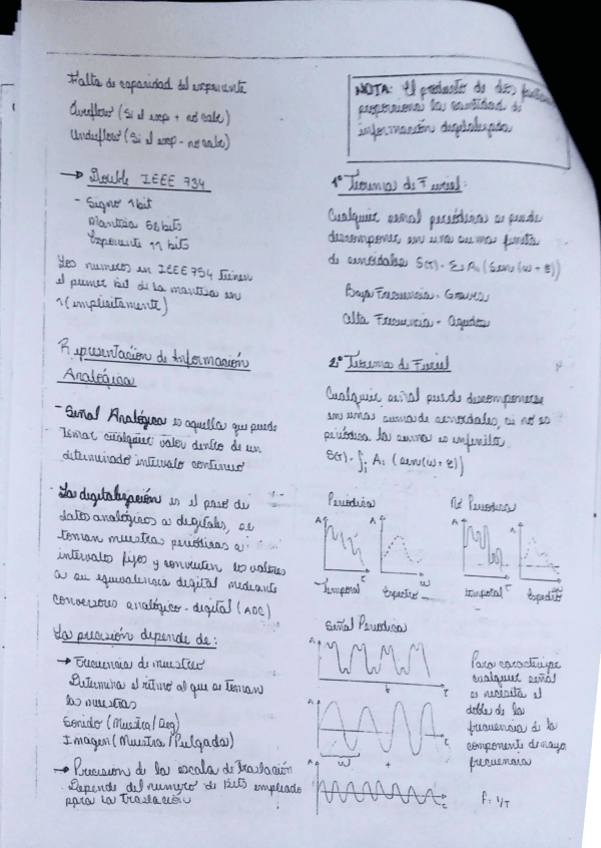 Falta de capacidad del exponente
Overflow (Si el exp + no cabe)
Underflow (Si el exp - no cabe)
→ Double IEEE 734
- Signo 1 bit
Mantisa 58 bits
Exponente 11 bits
Los numeros en IEEE 754 tienen
el primer bit de la mantisa en
1 (implícitamente)
Representación de Información
Analógica
- Señal Analógica es aquella que puede
tomar cualquier valor dentro de un
determinado intervalo continuo
- La digitalización es el paso de
datos analógicos a digitales, se
toman muestras periódicas a
intervalos fijos y convierten los valores
a su equivalencia digital mediante
conversores analógico-digital (ADC)
La precisión depende de:
→ Frecuencia de muestreo
Determina el ritmo al que se toman
las muestras
Sonido (Muestra/Seg)
Imagen (Muestra/Pulgada)
→ Precision de la escala de traslación
Depende del numero de bits empleado
para la traslación
NOTA: El producto de dos
proporciona la cantidad de
información digitalizada
1º Teorema de Furiel:
Cualquier señal periódica se puede
descomponer en una suma finita
de senoidales S(t) = Σ Ai (Sen(w + E))
Baja Frecuencia - Graves
Alta Frecuencia - Agudos
2º Teorema de Furiel
Cualquier señal puede descomponerse
en unas suma de senoidales, si no es
periódica la suma es infinita.
S(t) = ∫ Ai (sen(w + E))
Periódica
No Periodica
A
A
A
A
t
w
Temporal
Espectro
temporal
Espectro
Señal Periodica
A
t
A
t
w
A
t
Para caracterizar
cualquier señal
se necesita el
doble de la
frecuencia de la
componente de mayor
frecuencia
f = 1/T